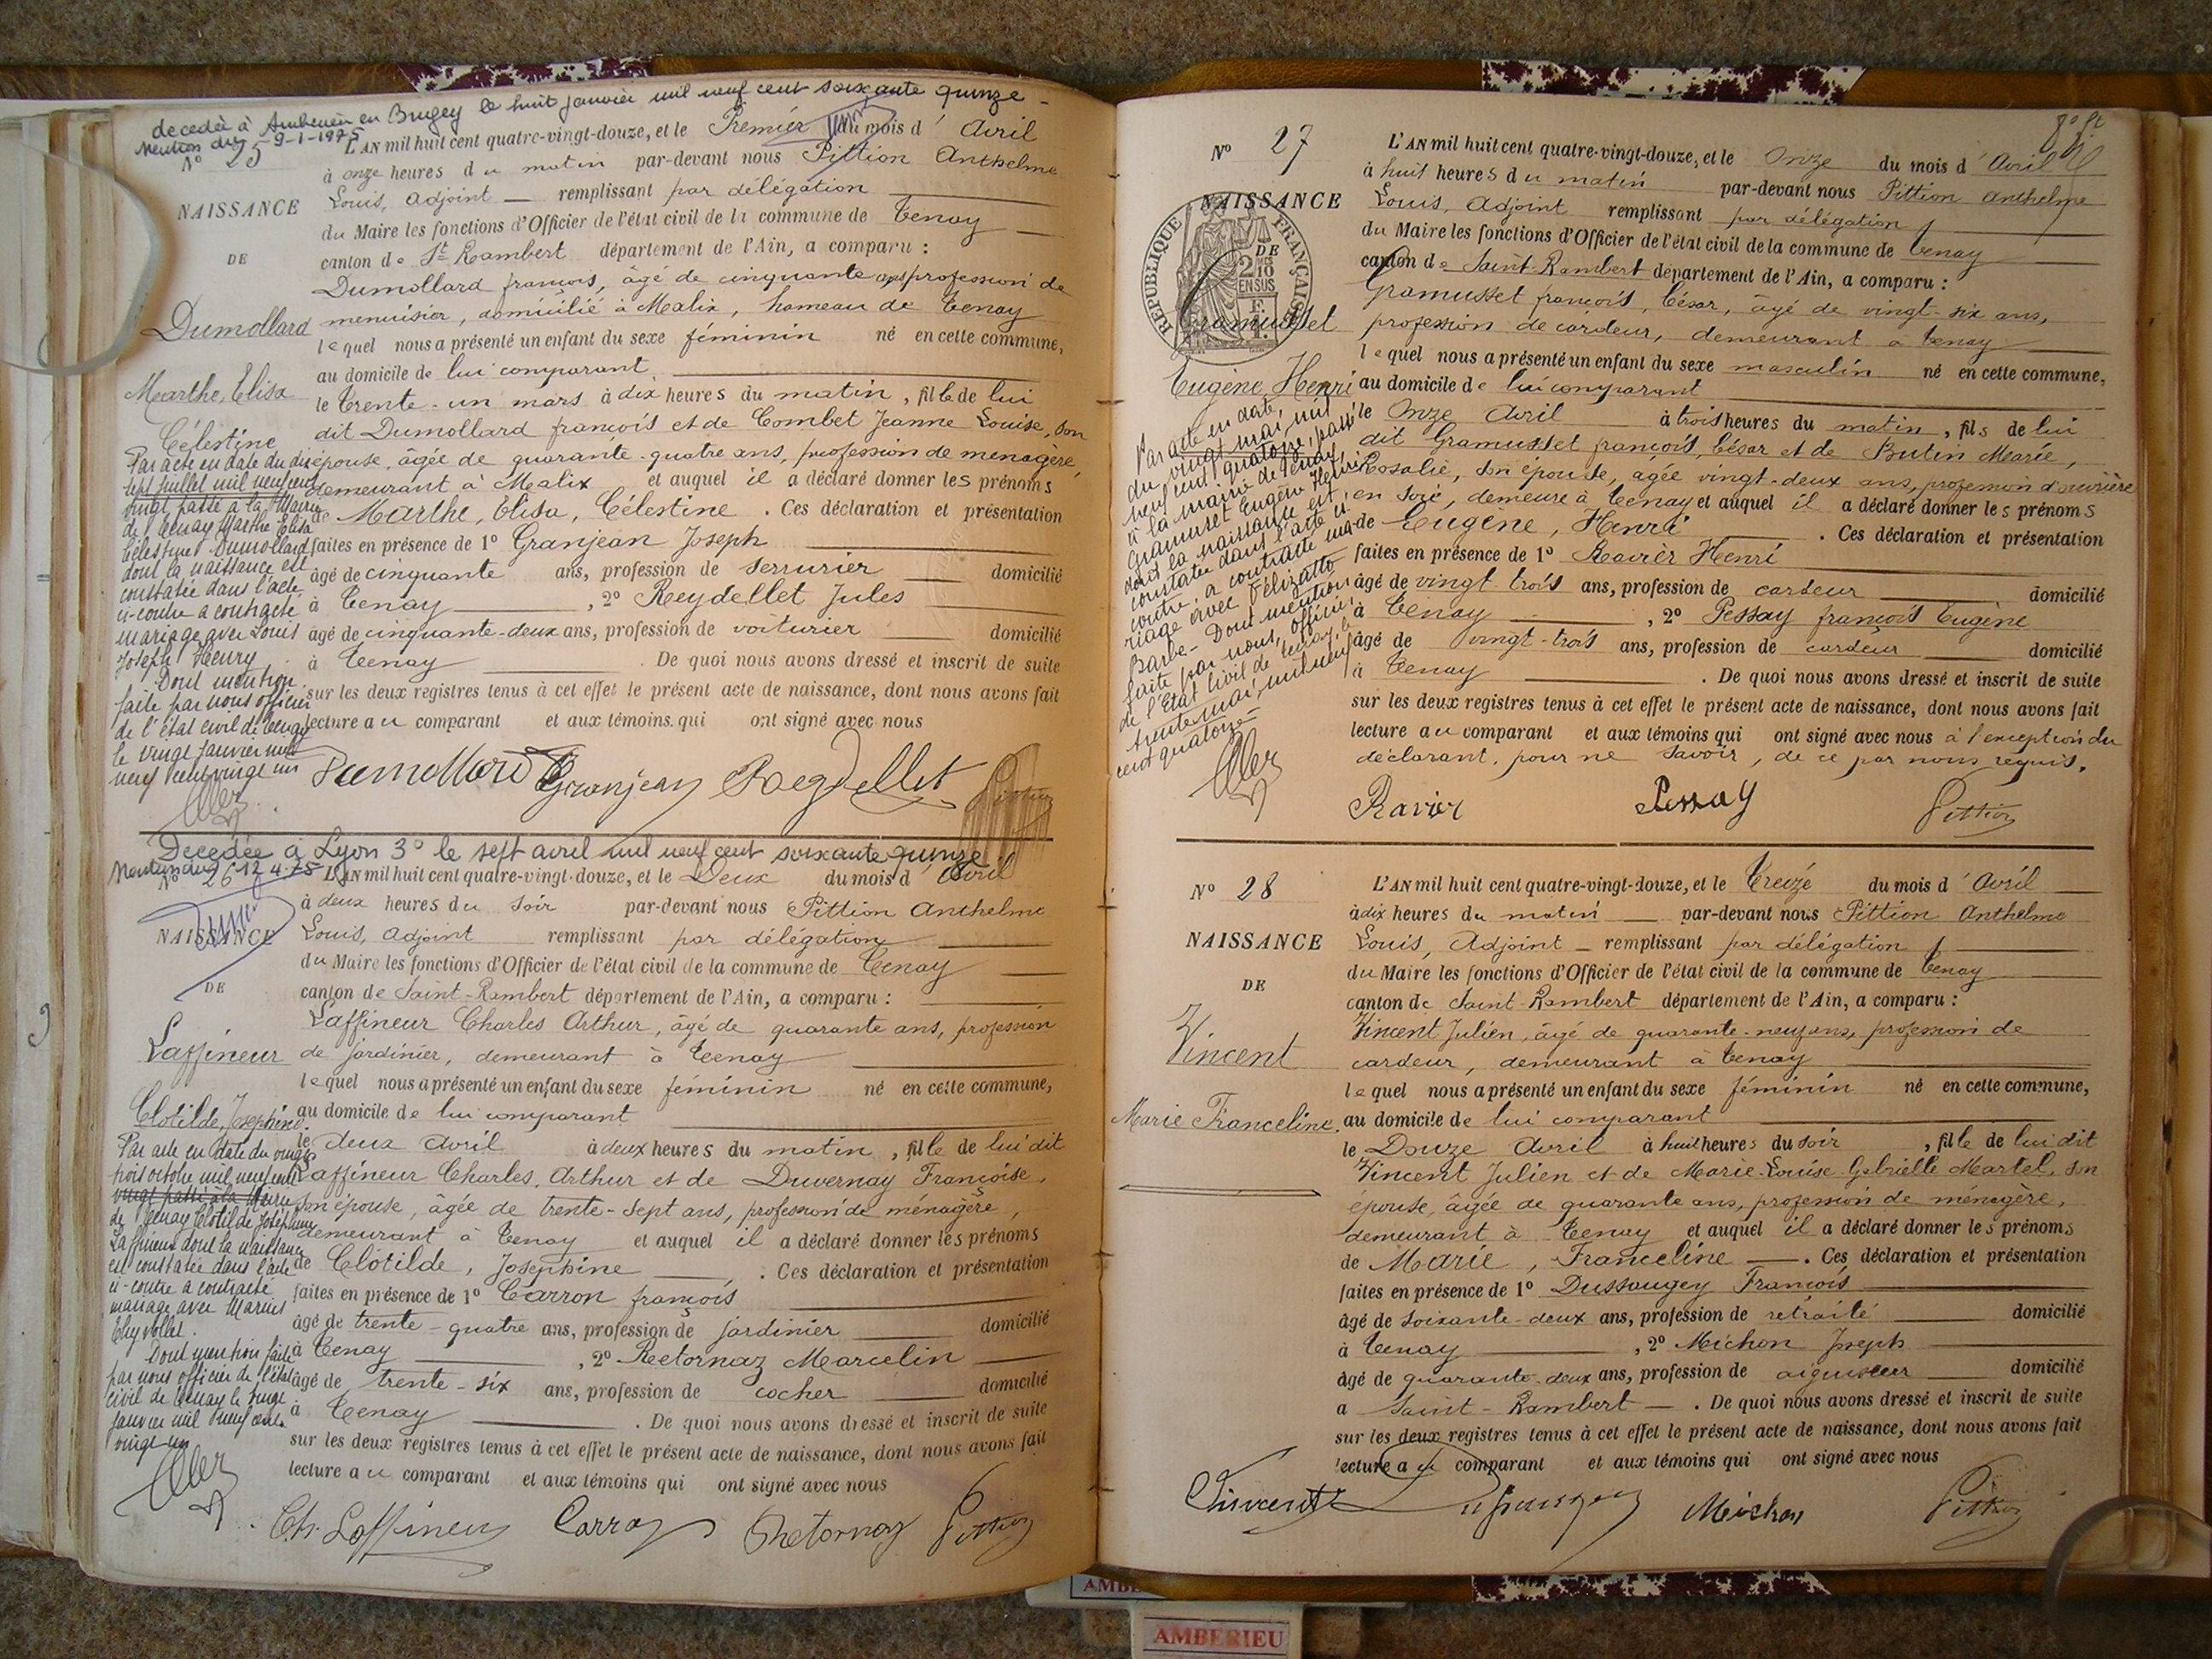 decedée à Ambérieu en Bugey le huit janvier mil neuf cent soixante quinze
Mention du 9-1-1975
N° 25
L'AN mil huit cent quatre-vingt-douze, et le Premier du mois d' Avril
à onze heures du matin par-devant nous Pittion Anthelme
NAISSANCE
Louis, adjoint remplissant par délégation
du Maire les fonctions d'Officier de l'état civil de la commune de Tenay
DE
canton de St Rambert département de l'Ain, a comparu :
Dumollard françois, âgé de cinquante ans, profession de
Dumollard
menuisier, domicilié à Malix, hameau de Tenay
lequel nous a présenté un enfant du sexe féminin né en cette commune,
au domicile de lui comparant
Marthe, Elisa
Célestine
le trente-un mars à dix heures du matin, fille de lui
dit Dumollard françois et de Combet Jeanne Louise, son
épouse, âgée de quarante-quatre ans, profession de menagère,
demeurant à Malix et auquel il a déclaré donner les prénoms
de Marthe, Elisa, Célestine. Ces déclaration et présentation
faites en présence de 1° Granjean Joseph
âgé de cinquante ans, profession de serrurier domicilié
à Tenay, 2° Reydellet Jules
âgé de cinquante-deux ans, profession de voiturier domicilié
à Tenay. De quoi nous avons dressé et inscrit de suite
sur les deux registres tenus à cet effet le présent acte de naissance, dont nous avons fait
lecture au comparant et aux témoins qui ont signé avec nous
Par acte en date du dix
sept juillet mil neuf cent
vingt, passé à la Mairie
de Tenay Marthe Elisa
Célestine Dumollard
dont la naissance est
constatée dans l'acte
ci-contre a contracté
mariage avec Louis
Joseph Henry.
Dont mention
faite par nous officier
de l'état civil de Tenay
le vingt janvier mil
neuf cent vingt un
Dumollard Granjean Reydellet Pittion
Decedée à Lyon 3° le sept avril mil neuf cent soixante quinze
Mention du 12 4-75
N° 26
L'AN mil huit cent quatre-vingt-douze, et le Deux du mois d' Avril
à deux heures du soir par-devant nous Pittion Anthelme
NAISSANCE
Louis, adjoint remplissant par délégation
du Maire les fonctions d'Officier de l'état civil de la commune de Tenay
DE
canton de Saint-Rambert département de l'Ain, a comparu :
Laffineur Charles Arthur, âgé de quarante ans, profession
Laffineur
de jardinier, demeurant à Tenay
lequel nous a présenté un enfant du sexe féminin né en cette commune,
Clotilde, Joséphine.
au domicile de lui comparant
le deux Avril à deux heures du matin, fille de lui dit
Laffineur Charles, Arthur et de Duvernay Françoise,
son épouse, âgée de trente-sept ans, profession de ménagère,
demeurant à Tenay et auquel il a déclaré donner les prénoms
de Clotilde, Joséphine. Ces déclaration et présentation
faites en présence de 1° Carron françois
âgé de trente-quatre ans, profession de jardinier domicilié
à Tenay, 2° Retornaz Marcelin
âgé de trente-six ans, profession de cocher domicilié
à Tenay. De quoi nous avons dressé et inscrit de suite
sur les deux registres tenus à cet effet le présent acte de naissance, dont nous avons fait
lecture au comparant et aux témoins qui ont signé avec nous
Par acte en date du vingt
trois octobre mil neuf cent
vingt passé à la Mairie
de Tenay Clotilde Joséphine
Laffineur dont la naissance
est constatée dans l'acte
ci-contre a contracté
mariage avec Marius
Dont mention faite
par nous officier de l'état
civil de Tenay le vingt
janvier mil neuf cent
vingt un
Ch. Laffineur Carron Retornaz Pittion
N° 27
L'AN mil huit cent quatre-vingt-douze, et le Onze du mois d' Avril
à huit heures du matin par-devant nous Pittion Anthelme
NAISSANCE
Louis, Adjoint remplissant par délégation
du Maire les fonctions d'Officier de l'état civil de la commune de Tenay
DE
canton de Saint-Rambert département de l'Ain, a comparu :
RÉPUBLIQUE FRANÇAISE
2 10 EN SUS
Gramusset françois, César, âgé de vingt-six ans,
Gramusset
profession de cardeur, demeurant à Tenay
lequel nous a présenté un enfant du sexe masculin né en cette commune,
Eugène, Henri
au domicile de lui comparant
le Onze Avril à trois heures du matin, fils de lui
dit Gramusset françois, César et de Butin Marie,
Rosalie, son épouse, âgée vingt-deux ans, profession d'ouvrière
en soie, demeure à Tenay et auquel il a déclaré donner les prénoms
de Eugène, Henri. Ces déclaration et présentation
faites en présence de 1° Ravier Henri
âgé de vingt-trois ans, profession de cardeur domicilié
à Tenay, 2° Pessay françois Eugène
âgé de vingt-trois ans, profession de cardeur domicilié
à Tenay. De quoi nous avons dressé et inscrit de suite
sur les deux registres tenus à cet effet le présent acte de naissance, dont nous avons fait
lecture au comparant et aux témoins qui ont signé avec nous à l'exception du
déclarant, pour ne savoir, de ce par nous requis.
Par acte en date,
du vingt mai, mil
neuf cent quatorze, passé
à la mairie de Tenay
Gramusset Eugène Henri
dont la naissance est
constatée dans l'acte ci
contre, a contracté ma-
riage avec Félizatto
Barbe- Dont mention
faite par nous, officier
de l'Etat Civil de Tenay, le
trente mai, mil neuf
cent quatorze-
Ravier Pessay Pittion
N° 28
L'AN mil huit cent quatre-vingt-douze, et le Treize du mois d' Avril
à dix heures du matin par-devant nous Pittion Anthelme
NAISSANCE
Louis, Adjoint remplissant par délégation
du Maire les fonctions d'Officier de l'état civil de la commune de Tenay
DE
canton de Saint-Rambert département de l'Ain, a comparu :
Vincent Julien, âgé de quarante-neuf ans, profession de
Vincent
cardeur, demeurant à Tenay
lequel nous a présenté un enfant du sexe féminin né en cette commune,
Marie Franceline.
au domicile de lui comparant
le Douze Avril à huit heures du soir, fille de lui dit
Vincent Julien et de Marie-Louise Gabrielle Martel, son
épouse, âgée de quarante ans, profession de ménagère,
demeurant à Tenay et auquel il a déclaré donner les prénoms
de Marie, Franceline. Ces déclaration et présentation
faites en présence de 1° Dussaugey François
âgé de soixante-deux ans, profession de retraité domicilié
à Tenay, 2° Michon Joseph
âgé de quarante-deux ans, profession de aiguiseur domicilié
a Saint-Rambert. De quoi nous avons dressé et inscrit de suite
sur les deux registres tenus à cet effet le présent acte de naissance, dont nous avons fait
lecture au comparant et aux témoins qui ont signé avec nous
Vincent Dussaugey Michon Pittion
AMBE
AMBERIEU